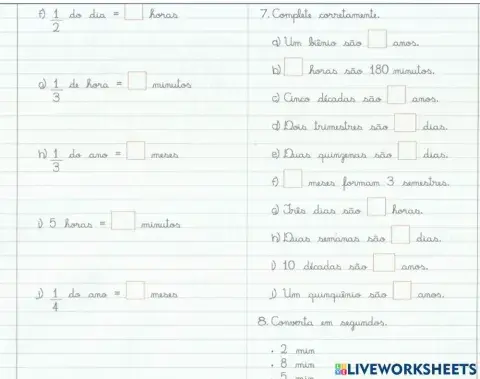 f) 1/2 do dia = horas
g) 1/3 de hora = minutos
h) 1/3 do ano = meses
i) 5 horas = minutos
j) 1/4 do ano = meses
7. Complete corretamente.
a) Um biênio são anos.
b) horas são 180 minutos.
c) Cinco décadas são anos.
d) Dois trimestres são dias.
e) Duas quinzenas são dias.
f) meses formam 3 semestres.
g) Três dias são horas.
h) Duas semanas são dias.
i) 10 décadas são anos.
j) Um quinquênio são anos.
8. Converta em segundos.
. 2 min
. 8 min
5 min
LIVEWORKSHEETS